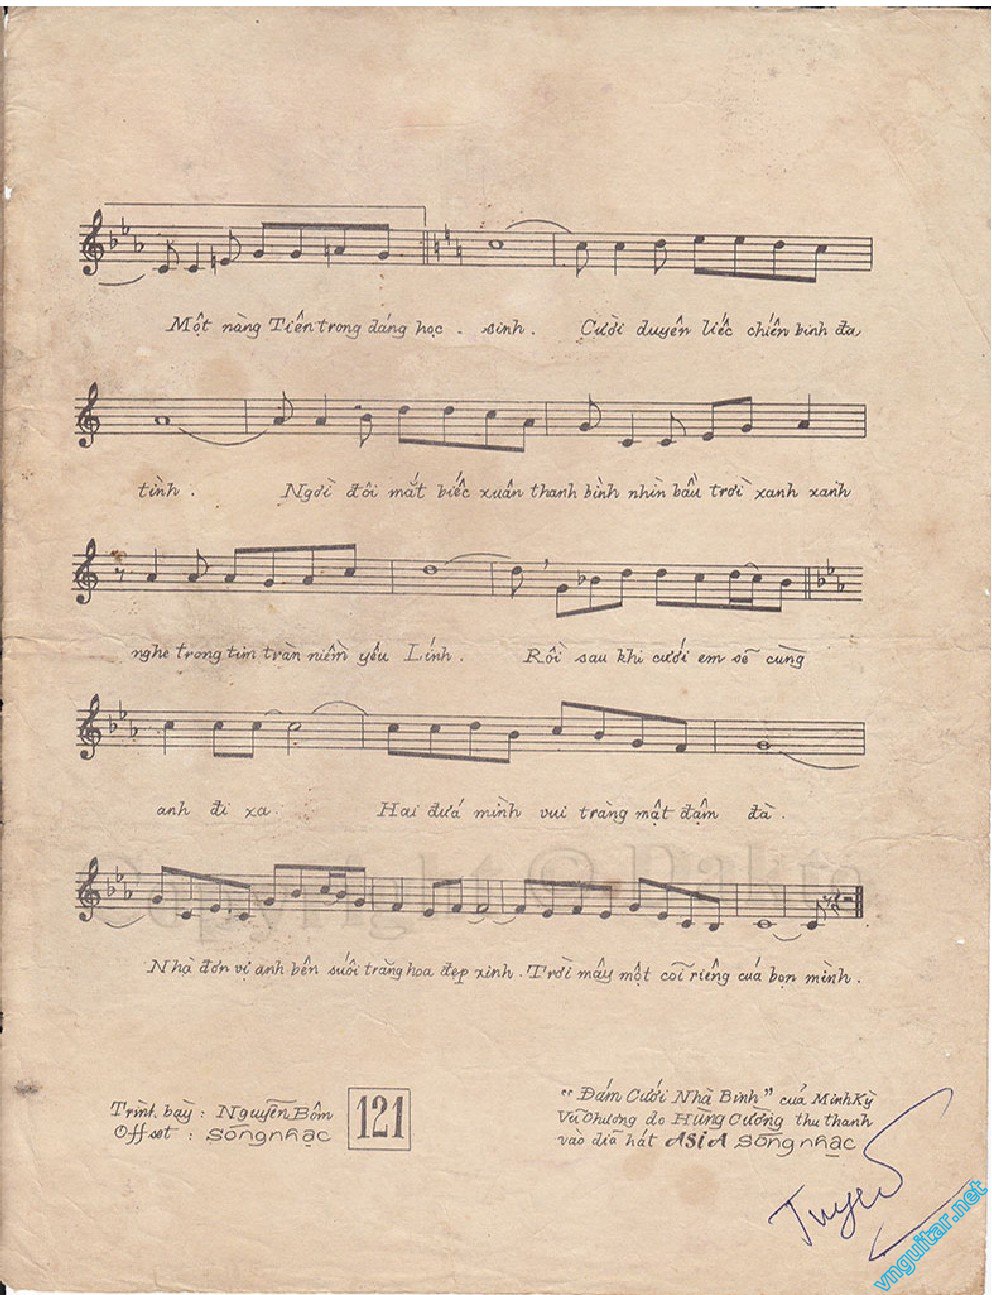 Một nàng Tiên trong dáng học - sinh. Cười duyên liếc chiến binh đa
tình. Ngời đôi mắt biếc xuân thanh bình nhìn bầu trời xanh xanh
nghe trong tim tràn niềm yêu Lính. Rồi sau khi cưới em sẽ cùng
anh đi xa. Hai đứa mình vui tràng mật đậm đà.
Copyright © Dakto
Nhà đơn vị anh bên suối trăng hoa đẹp xinh. Trời mây một cõi riêng của bọn mình.
Trình bày : Nguyễn Bôm
Offset : Sóngnhạc
121
"Đám Cưới Nhà Binh" của Minh Kỳ
Vũ Chương do Hùng Cường thu thanh
vào dĩa hát ASIA Sóngnhạc
Tuyen
vnguitar.net